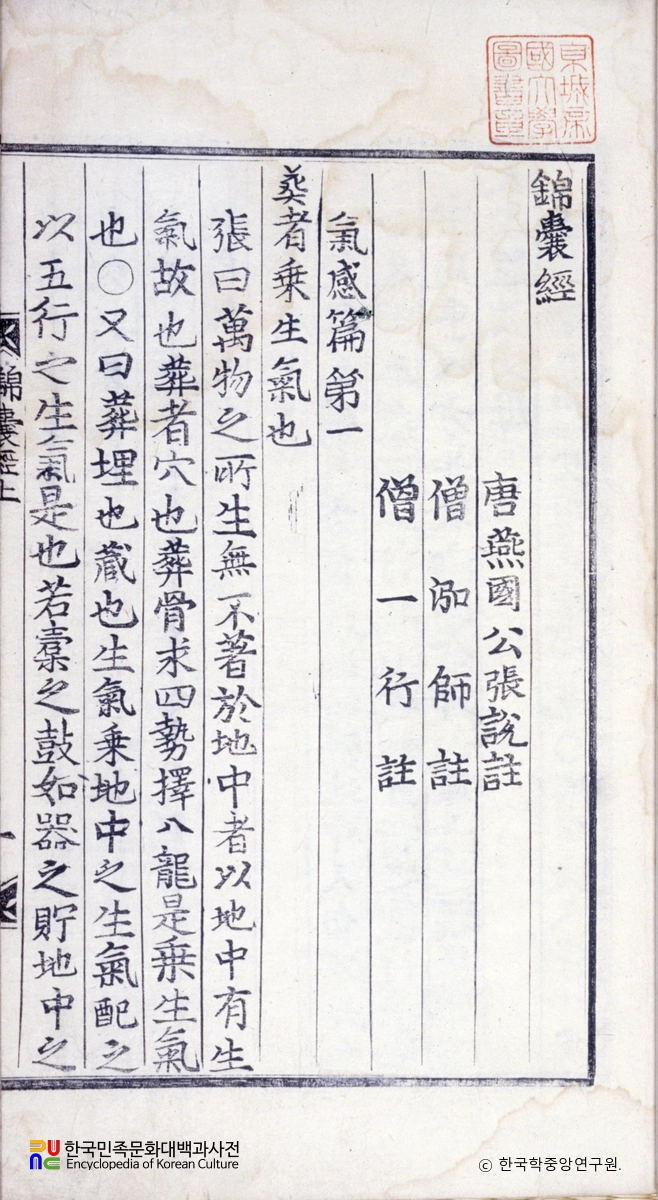 錦囊經
唐燕國公張說註
僧泓師註
僧一行註
氣感篇第一
葬者乘生氣也
張曰萬物之所生無不著於地中者以地中有生
氣故也葬者穴也葬骨求四勢擇八龍是乗生氣
也○又曰葬埋也藏也生氣乗地中之生氣配之
以五行之生氣是也若橐之鼓如器之貯地中之
錦囊經上
一
京城帝
國大學
圖書章
한국민족문화대백과사전
Encyclopedia of Korean Culture
ⓒ 한국학중앙연구원.